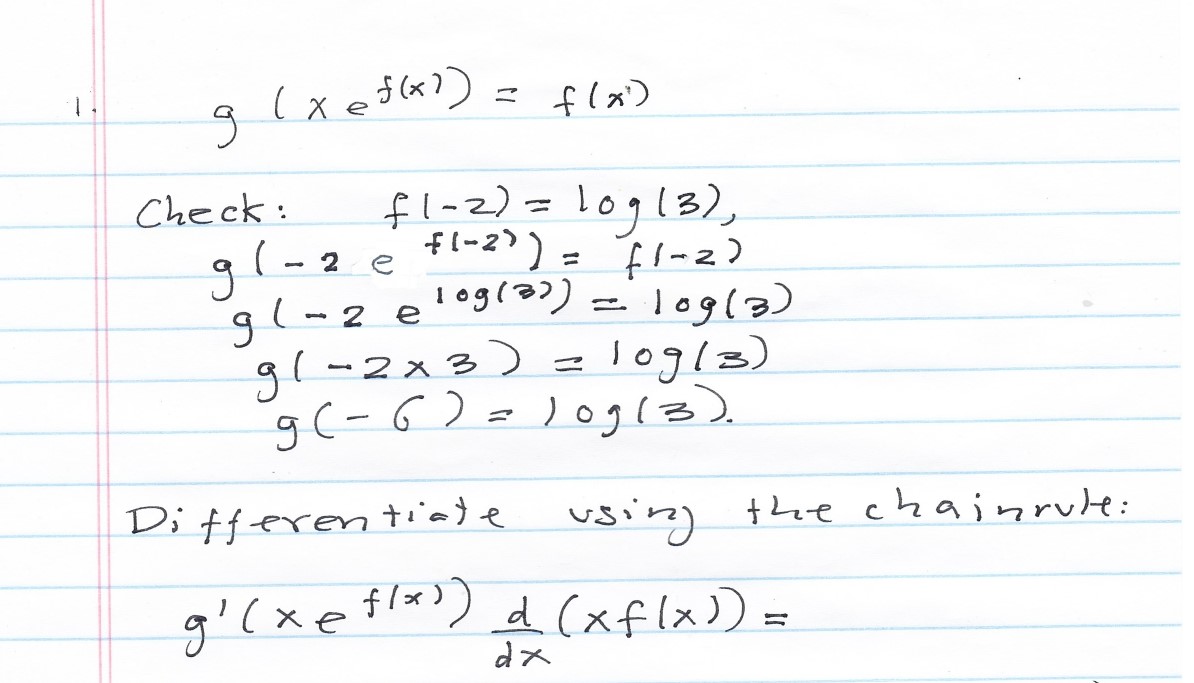 1. g (x e^f(x)) = f(x)
Check: f(-2) = log(3),
g(-2 e^f(-2)) = f(-2)
g(-2 e^log(3)) = log(3)
g(-2 x 3) = log(3)
g(-6) = log(3).
Differentiate using the chainrule:
g'(x e^f(x)) d/dx (x f(x)) =